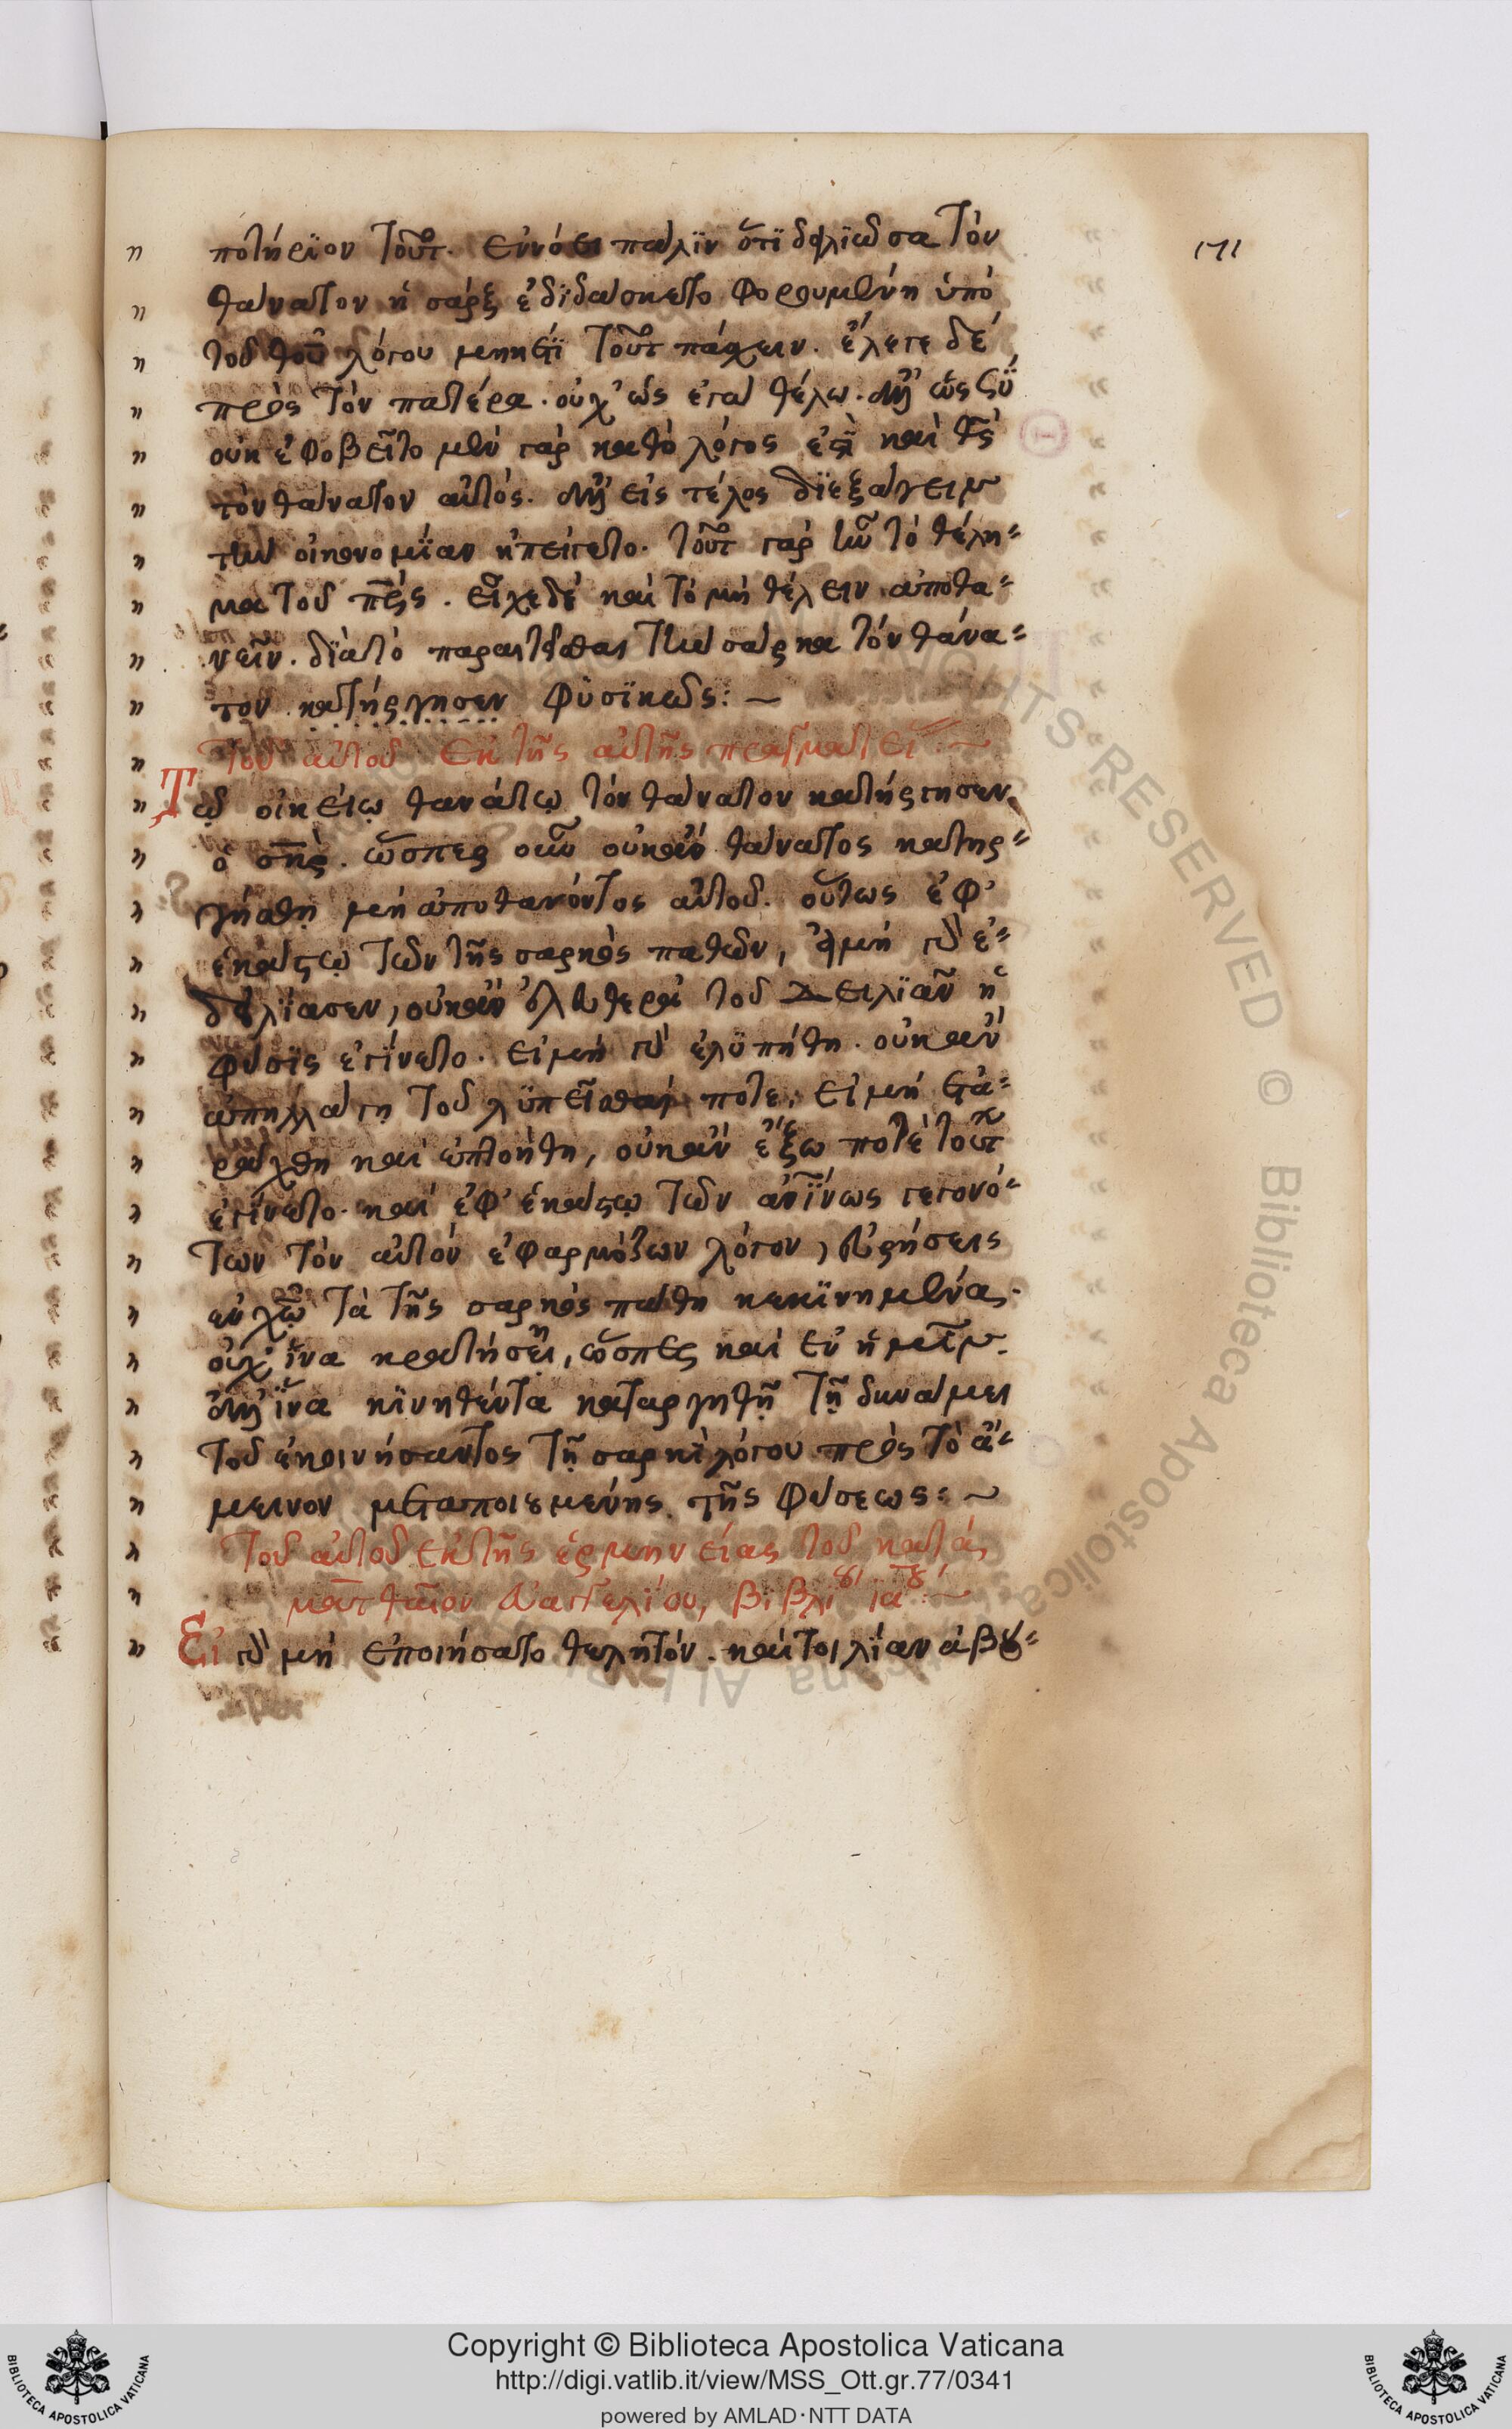 171
ποτήριον τοῦτ. ἐννόει πάλϊν ὅτι δειλιῶσα τὸν
θάνατον ἡ σάρξ ἐδιδάσκετο φορουμένη ὑπὸ
τοῦ θεοῦ λόγου μηκέτι τοῦτο πάσχειν. ἔλεγε δὲ
πρὸς τὸν πατέρα. οὐχ' ὡς ἐγὼ θέλω. ἀλλ' ὡς σύ
οὐκ ἐφοβεῖτο μὲν γὰρ καθὸ λόγος ἐστὶ καὶ θς
τὸν θάνατον αὐτός. ἀλλ' εἰς τέλος διεξάγειν
τὴν οἰκονομίαν ἠπείγετο. τοῦτο γὰρ ἦν τὸ θέλη-
μα τοῦ πρς. εἶχε δὲ καὶ τὸ μὴ θέλειν ἀποθα-
νεῖν. διὰ τὸ παραιτεῖσθαι τὴν σάρκα τὸν θάνα-
τον φυσϊκῶς:~
Τοῦ αὐτοῦ ἐκ τῆς αὐτῆς πραγματεί:~
Τῷ οἰκείῳ θανάτῳ τὸν θάνατον κατήργησεν
ὁ σηρ. ὥσπερ οὖν οὐκ ἂν θάνατος κατηρ-
γήθη μὴ ἀποθανόντος αὐτοῦ. οὕτως ἐφ'
ἑκάστῳ τῶν τῆς σαρκὸς παθῶν, εἰ μὴ γὰρ ἐ-
δειλίασεν, οὐκ ἂν ἐλευθέρα τοῦ δειλιᾶν ἡ
φύσϊς ἐγίνετο. εἰ μὴ γὰρ ἐλυπήθη. οὐκ ἂν
ἀπηλλάγη τοῦ λυπεῖσθαι ποτε. εἰ μὴ ἐτα-
ράχθη καὶ ἐπτοήθη, οὐκ ἂν ἔξω ποτὲ τούτων
ἐγίνετο. καὶ ἐφ' ἑκάστῳ τῶν ἀνϊνως γεγονό-
των τὸν αὐτὸν ἐφαρμόζων λόγον, εὑρήσεις
ἐν χω τὰ τῆς σαρκὸς πάθη κεκινημένα.
οὐχ' ἵνα κρατήσῃ, ὥσπερ καὶ ἐν ἡμῖν.
ἀλλ' ἵνα κινηθέντα καταργηθῇ τῇ δυνάμει
τοῦ ἐνοικήσαντος τῇ σαρκὶ λόγου πρὸς τὸ ἄ-
μεινον μεταποιουμένης τῆς φύσεως:~
Τοῦ αὐτοῦ ἐκ τῆς ἑρμηνείας τοῦ κατὰ
ματθαῖον εὐαγγελίου, βιβλίου ια:~
Εἰ γὰρ μὴ ἐποιήσατο θελητόν. καίτοι λίαν ἀβού-
Copyright © Biblioteca Apostolica Vaticana
http://digi.vatlib.it/view/MSS_Ott.gr.77/0341
powered by AMLAD·NTT DATA